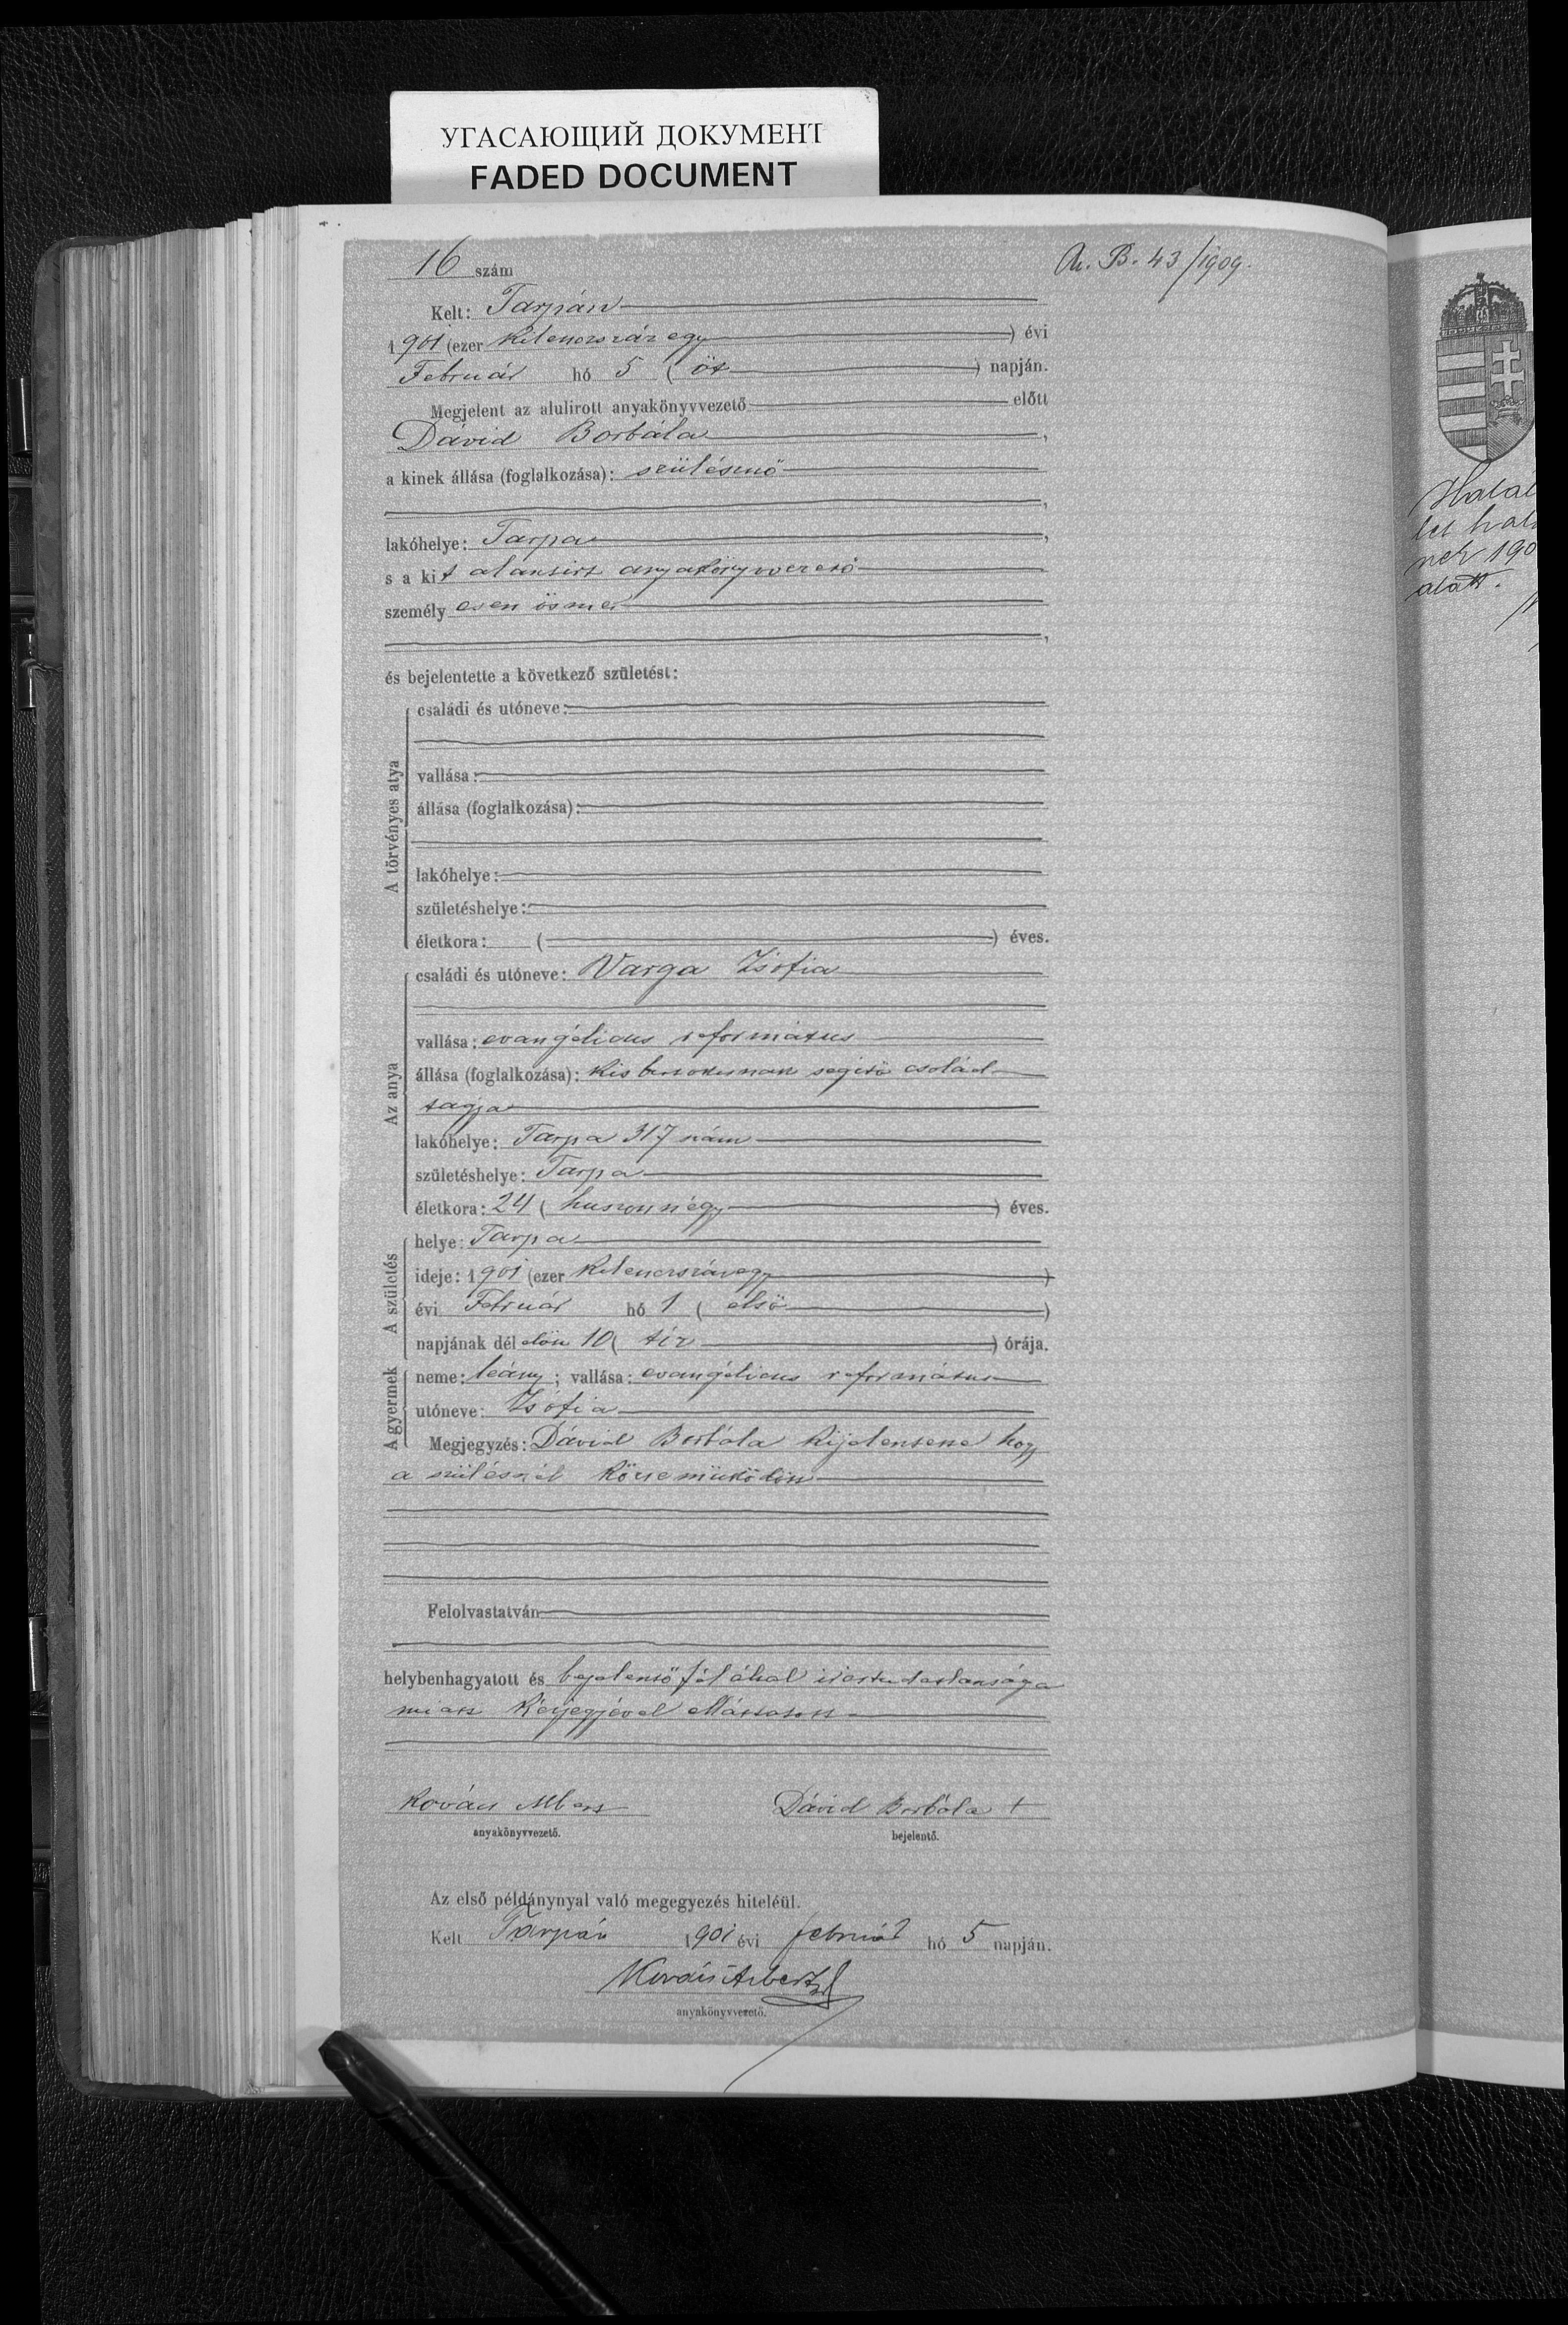 УГАСАЮЩИЙ ДОКУМЕНТ
FADED DOCUMENT
16 szám
A. B. 43/1909.
Kelt: Tarpán
1901 (ezer kilenczszáz egy) évi
Február hó 5 (öt) napján.
Megjelent az alulirott anyakönyvvezető előtt
Dávid Borbála,
a kinek állása (foglalkozása): szülésznő
,
lakóhelye: Tarpa,
s a kit alantirt anyakönyvvezető
személyesen ösmer
,
és bejelentette a következő születést:
A törvényes atya
családi és utóneve:
vallása:
állása (foglalkozása):
lakóhelye:
születéshelye:
életkora: ( ) éves.
Az anya
családi és utóneve: Varga Zsófia
vallása: evangélicus református
állása (foglalkozása): kisbirtokosnak segitő család
tagja
lakóhelye: Tarpa 317 szám
születéshelye: Tarpa
életkora: 24 (huszonnégy) éves.
A születés
helye: Tarpa
ideje: 1901 (ezer kilenczszázegy)
évi Február hó 1 (első)
napjának dél előtt 10 (tíz) órája.
A gyermek
neme: leány; vallása: evangélicus református
utóneve: Zsófia
Megjegyzés: Dávid Borbála kijelentette hogy
a szülésnél közremüködött
Felolvastatván
helybenhagyatott és bejelentő fél által irástudatlansága
miatt kézjegyével elláttatott
Kovács Albert
Dávid Borbála +
anyakönyvvezető.
bejelentő.
Az első példánynyal való megegyezés hiteléül.
Kelt Tarpán 1901 évi február hó 5 napján.
Kovács Albert
anyakönyvvezető.
Halál
190
alatt.